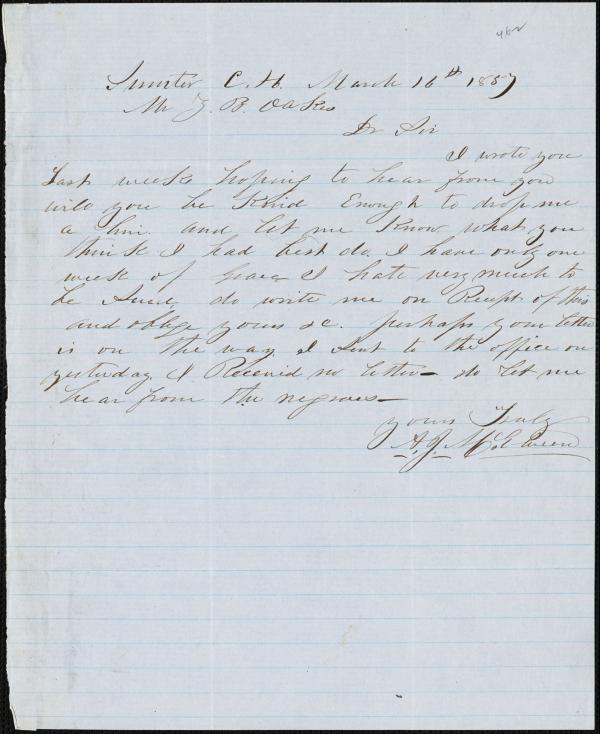 462
Sumter C. H. March 16th 1857
Mr Z. B. Oakes
Dr Sir
I wrote you
Last week hoping to hear from you
will you be Kind Enough to drop me
a line and let me Know what you
think I had best do. I have only one
week of grace I hate very much to
be Sued, do write me on Receipt of this
and oblige yours &c. perhaps your letter
is on the way I Sent to the office on
yesterday I Received no letter – do let me
hear from the negroes –
yours Truly
A. J. McElveen